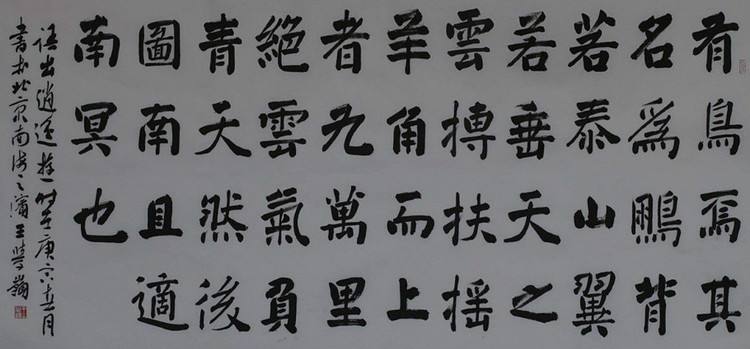 有鳥焉其
名爲鵬背
若泰山翼
若垂天之
雲摶扶摇
羊角而上
者九萬里
絕雲氣負
青天然後
圖南且適
南冥也
語出逍遥遊時在庚寅五月
書於北京南湖之濱王學嶺